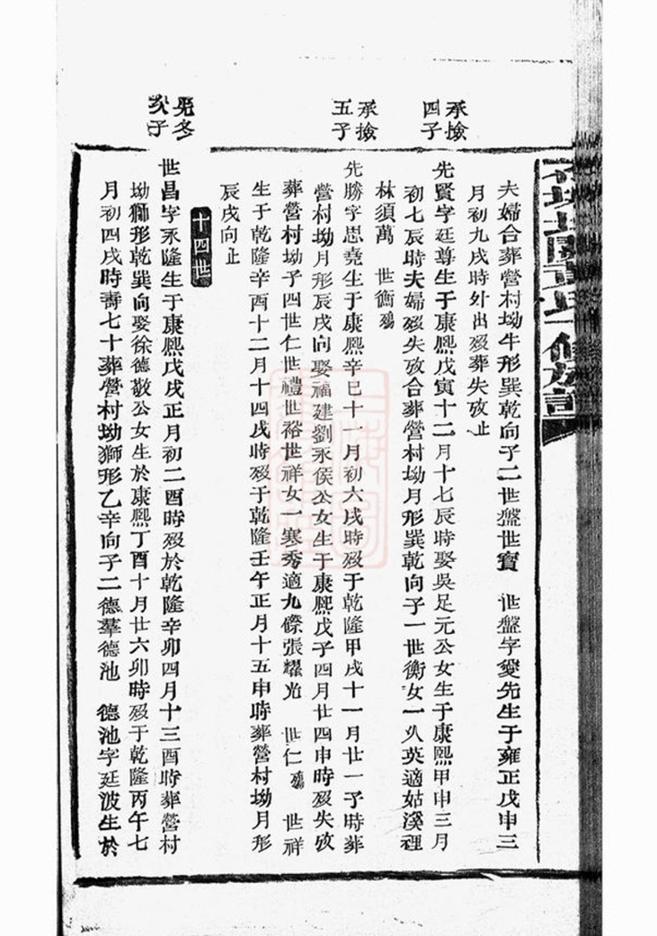 夫婦合葬營村坳牛形巽乾向子二世盤世寶　世盤字愛先生于雍正戊申三
月初九戌時外出歿葬失攷止
承撿
四子
先賢字廷尊生于康熙戊寅十二月十七辰時娶吳足元公女生于康熙甲申三月
初七辰時夫婦歿失攷合葬營村坳月形巽乾向子一世衡女一久英適姑溪裡
林須萬　世衡殤
承撿
五子
先勝字思堯生于康熙辛巳十一月初六戌時歿于乾隆甲戌十一月廿一子時葬
營村坳月形辰戌向娶福建劉承侯公女生于康熙戊子四月廿四申時歿失攷
葬營村坳子四世仁世禮世裕世祥女一寒秀適九際張耀光　世仁殤　世祥
生于乾隆辛酉十二月十四戌時歿于乾隆壬午正月十五申時葬營村坳月形
辰戌向止
十四世
次子
世昌字永隆生于康熙戊戌正月初二酉時歿於乾隆辛卯四月十三酉時葬營村
坳獅形乾巽向娶徐德敬公女生於康熙丁酉十月廿六卯時歿于乾隆丙午七
月初四戌時壽七十葬營村坳獅形乙辛向子二德羣德池　德池字廷波生於